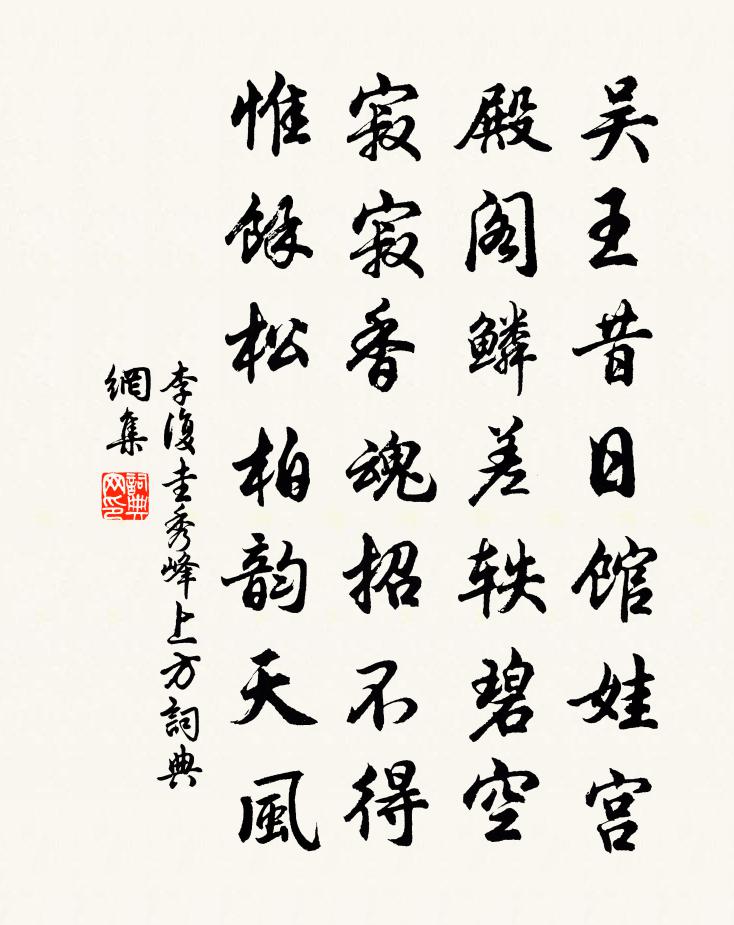 吴王昔日馆娃宫
殿阁鳞差轶碧空
寂寂香魂招不得
惟馀松柏韵天風
李復圭秀峰上方詞典
網集
詞典
网印